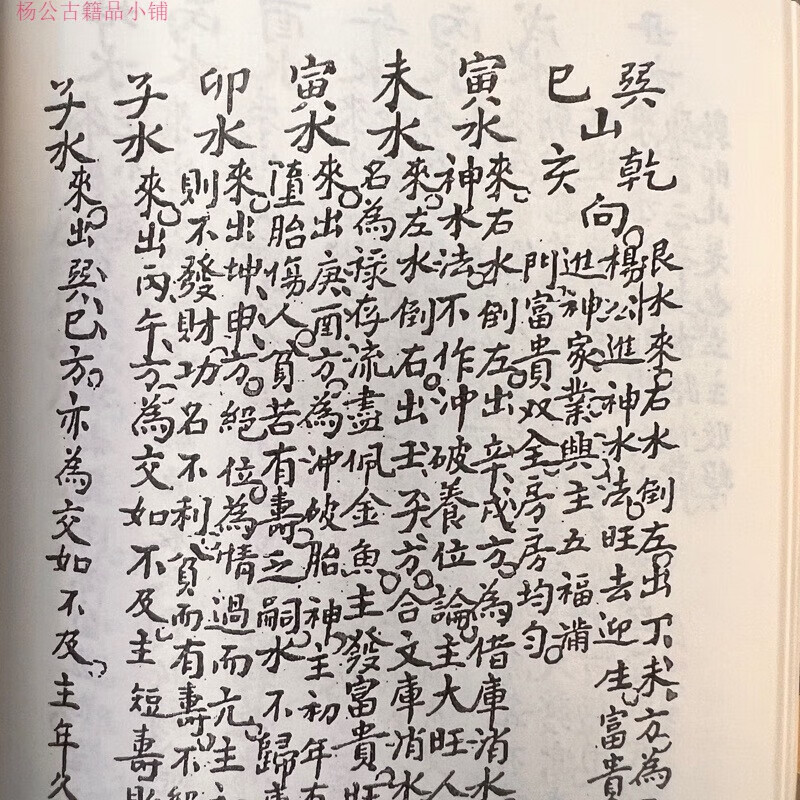 杨公古籍品小铺
巽巳山乾亥向
艮水來右水倒左出丁未方為
楊公進神水法旺去迎生富貴
進神家業興主五福滿
門富貴双全房房均勻
寅水來右水倒左出辛戌方為借庫消水
神水法不作沖破養位論主大旺人
未水來左水倒右出壬子方合文庫消水
名為祿存流盡佩金魚主發富貴旺
寅水來出庚酉方為沖破胎神主初年有
墮胎傷人貧若有壽乏嗣水不歸
卯水來出坤申方絕位為情過而亢主
則不發財功名不利貧而有壽不
子水來出丙午方為交如不及主短壽
子水來出巽巳方亦為交如不及主年久